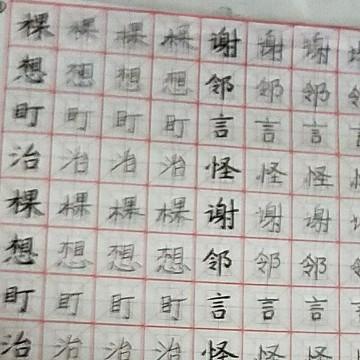 棵棵棵棵谢谢谢
想想想想邻邻邻邻
盯盯盯盯言言言言
治治治治怪怪怪怪
棵棵棵棵谢谢谢
想想想想邻邻邻邻
盯盯盯盯言言言言
治治治治怪怪怪